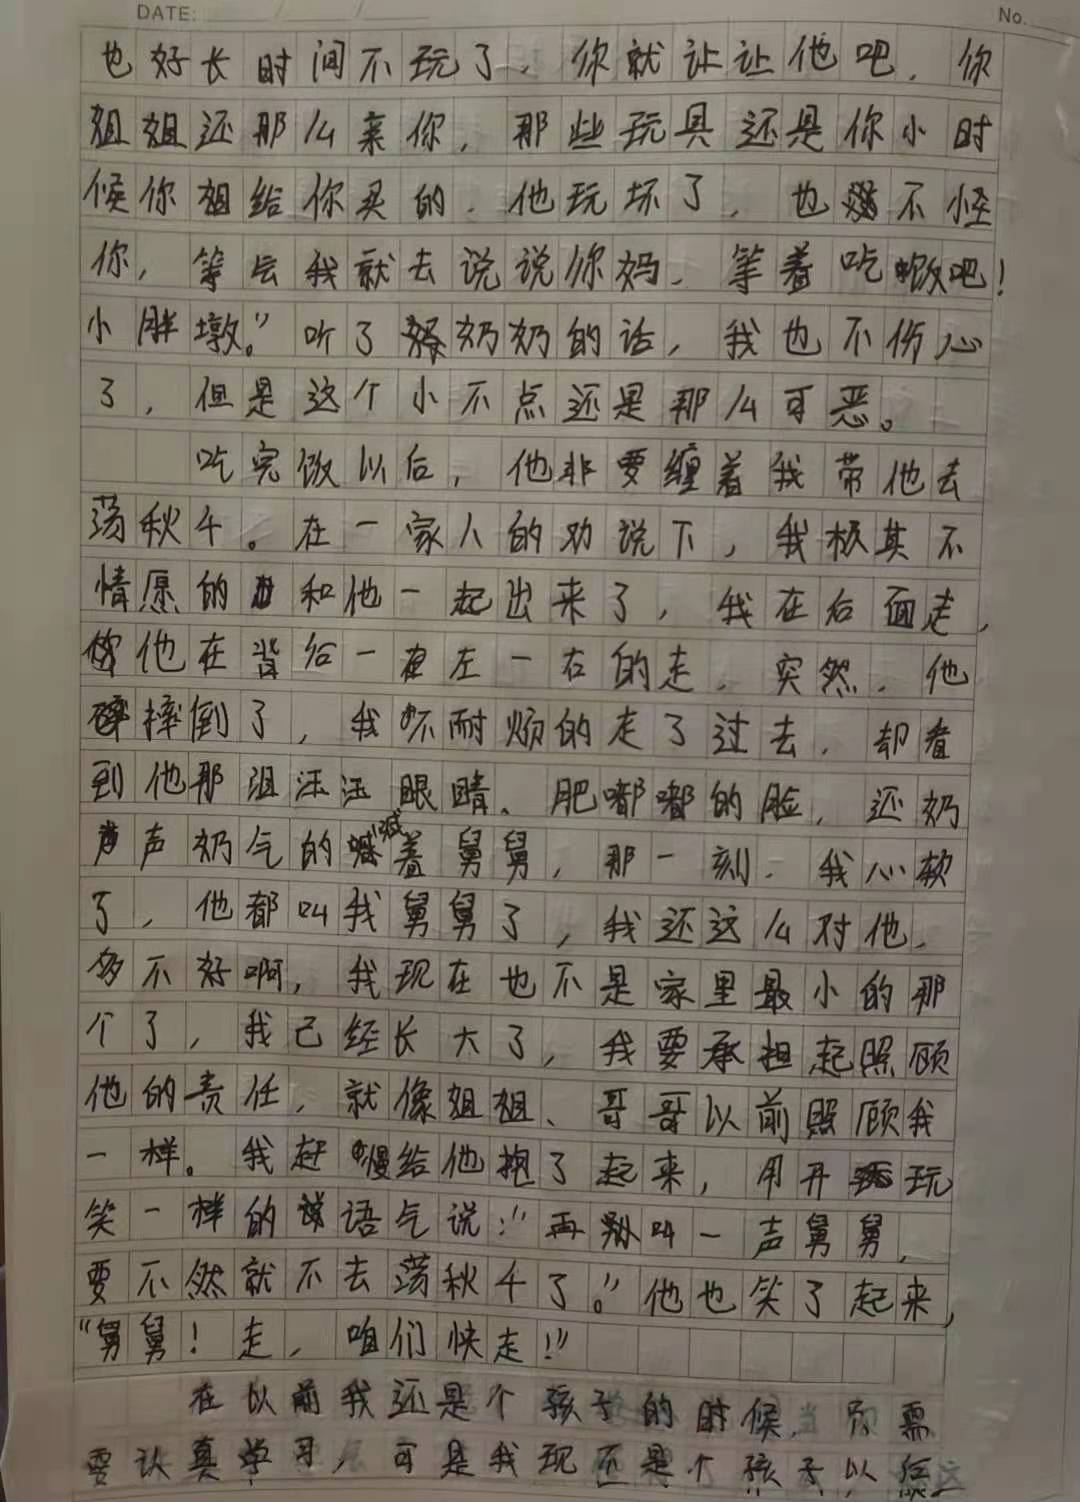 DATE: / / No.
也好长时间不玩了，你就让让他吧，你
姐姐还那么亲你，那些玩具还是你小时
候你姐给你买的，他玩坏了，也不怪
你，等会我就去说说你妈，等着吃饭吧！
小胖墩。”听了奶奶的话，我也不伤心
了，但是这个小不点还是那么可恶。
吃完饭以后，他非要缠着我带他去
荡秋千。在一家人的劝说下，我极其不
情愿的和他一起出来了，我在后面走，
他在背后一左一右的走，突然，他
摔倒了，我不耐烦的走了过去，却看
到他那泪汪汪眼睛、肥嘟嘟的脸，还奶
声奶气的喊着舅舅，那一刻，我心软
了，他都叫我舅舅了，我还这么对他，
多不好啊，我现在也不是家里最小的那
个了，我已经长大了，我要承担起照顾
他的责任，就像姐姐、哥哥以前照顾我
一样。我赶慢给他抱了起来，用开玩
笑一样的语气说：“再叫一声舅舅，
要不然就不去荡秋千了。”他也笑了起来，
“舅舅！走，咱们快走！”
在以前我还是个孩子的时候，只需
要认真学习，可是我现还是个孩子以